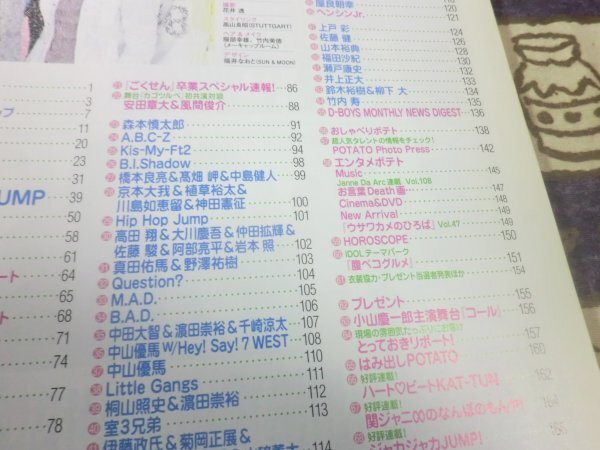 撮影
花井 透
スタイリング
高山良昭(STUTTGART)
ヘア&メイク
服部幸雄、竹内美徳
(メーキャップルーム)
デザイン
福井なおと(SUN & MOON)
1
3
7
11
UMP 39
50
58
61
64
65
68
71
74
77
78
21 『ごくせん』卒業スペシャル速報! 86
22 舞台『カゴツルベ』初共演対談
安田章大&風間俊介 88
23 森本慎太郎 91
24 A.B.C-Z 92
25 Kis-My-Ft2 94
26 B.I.Shadow 98
27 橋本良亮&髙畑 岬&中島健人 99
28 京本大我&植草裕太&
川島如恵留&神田憲征 100
29 Hip Hop Jump 101
30 高田 翔&大川慶吾&仲田拡輝&
佐藤 駿&阿部亮平&岩本 照 102
31 真田佑馬&野澤祐樹 103
32 Question? 104
33 M.A.D. 105
34 B.A.D. 106
35 中田大智&濵田崇裕&千崎涼太 107
36 中山優馬 w/Hey! Say! 7 WEST 108
37 中山優馬 110
38 Little Gangs 111
39 桐山照史&濵田崇裕 112
40 室3兄弟 113
41 伊藤政氏&菊岡正展&
114
屋良朝幸
ヘンシンJr. 120
上戸 彩 121
佐藤 健 124
山本裕典 126
福田沙紀 128
瀬戸康史 130
井上正大 132
鈴木裕樹&柳下 大 133
竹内 寿 134
D-BOYS MONTHLY NEWS DIGEST 135
136
おしゃべりポテト 138
超人気タレントの情報をチェック!
POTATO Photo Press 142
エンタメポテト
Music 145
Janne Da Arc連載 Vol.108
お言葉Death画 146
Cinema&DVD 147
New Arrival 148
『ウサワカメのひろば』Vol.47 149
HOROSCOPE 150
iDOLテーマパーク
『腹ペコグルメ』 151
衣装協力・プレゼント当選者発表ほか 154
プレゼント 155
小山慶一郎主演舞台『コール』 156
現場の雰囲気たっぷりにお届け
とっておきリポート! 157
はみ出しPOTATO 160
好評連載!
ハート♡ビートKAT-TUN 162
好評連載!
関ジャニ∞のなんぼのもん 164
好評連載!
ジャカジャカJUMP! 166